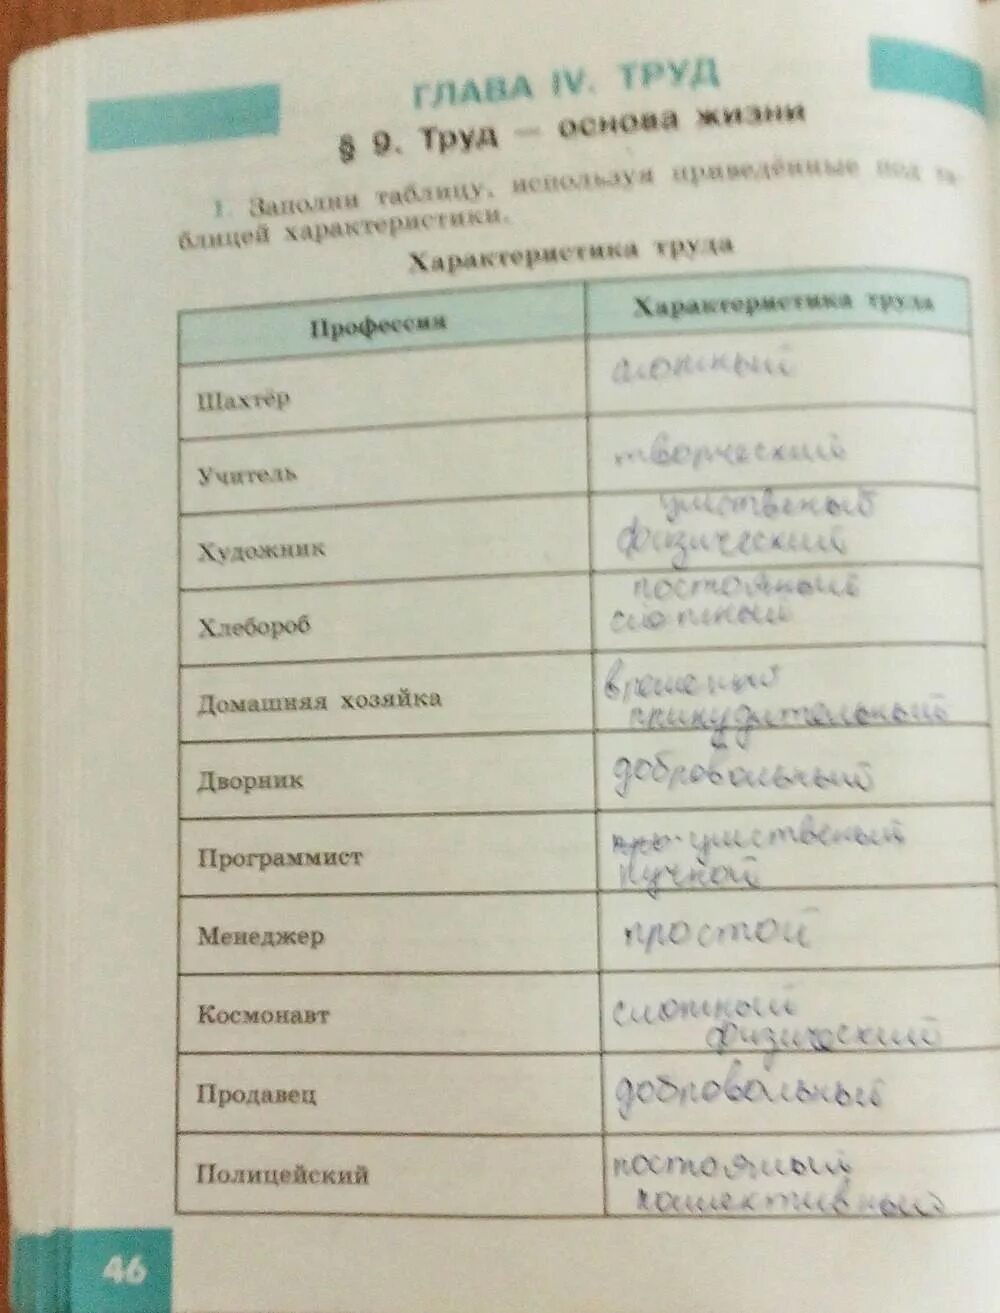 ГЛАВА IV. ТРУД
§ 9. Труд — основа жизни
1. Заполни таблицу, используя приведённые под та-
блицей характеристики.
Характеристика труда
Профессия Характеристика труда
Шахтёр сложный
Учитель творческий
умственый
Художник физический
постоянный
Хлебороб сложный
Домашняя хозяйка временый
принудительный
Дворник добровольный
Программист умственый
ручной
Менеджер простой
Космонавт сложный
физический
Продавец добровольный
Полицейский постоянный
коллективный
46